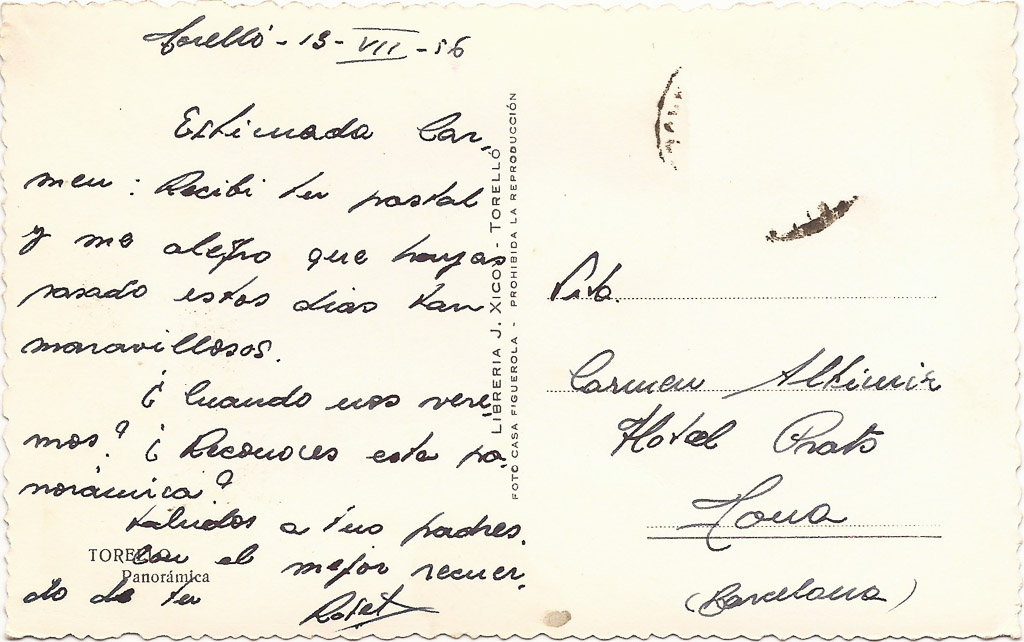 Torelló - 13 - VII - 56
Estimada Car-
men : Recibi tu postal
y me alegro que hayas
pasado estos dias tan
maravillosos.
¿ Cuando nos vere-
mos? ¿ Reconoces esta pa-
norámica?
Saludos a tus padres.
Con el mejor recuer-
do de tu
TORELLÓ
Panorámica
LIBRERIA J. XICOY - TORELLÓ
FOTO CASA FIGUEROLA - PROHIBIDA LA REPRODUCCIÓN
Srta.
Carmen Altimir
Hotel Prats
(Barcelona)